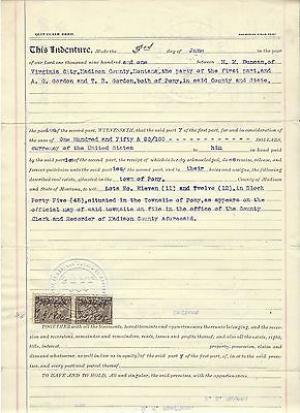 QUIT-CLAIM DEED.
This Indenture, Made the 3rd day of June in the year
of our Lord one thousand nine hundred and one between H. M. Duncan, of
Virginia City, Madison County, Montana, the party of the first part, and
A. G. Gordon and T. B. Gordon, both of Pony, in said County and State,
the parties of the second part, WITNESSETH, that the said party of the first part, for and in consideration of the
sum of One Hundred and Fifty & 00/100 DOLLARS,
currency of the United States to him in hand paid
by the said parties of the second part, the receipt of which is hereby acknowledged, does remise, release, and
forever quitclaim unto the said parties of the second part, and to their heirs and assigns, the following
described real estate, situated in the town of Pony, County of Madison
and State of Montana, to wit: Lots No. Eleven (11) and Twelve (12), in Block
Forty Five (45), situated in the Townsite of Pony, as appears on the
official map of said townsite on file in the office of the County
Clerk and Recorder of Madison County aforesaid.
TOGETHER with all the tenements, hereditaments and appurtenances thereto belonging, and the reversion
and reversions, remainder and remainders, rents, issues and profits thereof; and also all the estate, right,
title, interest, property, possession, claim and
demand whatsoever, as well in law as in equity, of the said party of the first part, of, in or to the said premises,
and every part and parcel thereof.
TO HAVE AND TO HOLD, All and singular, the said premises, with the appurtenances